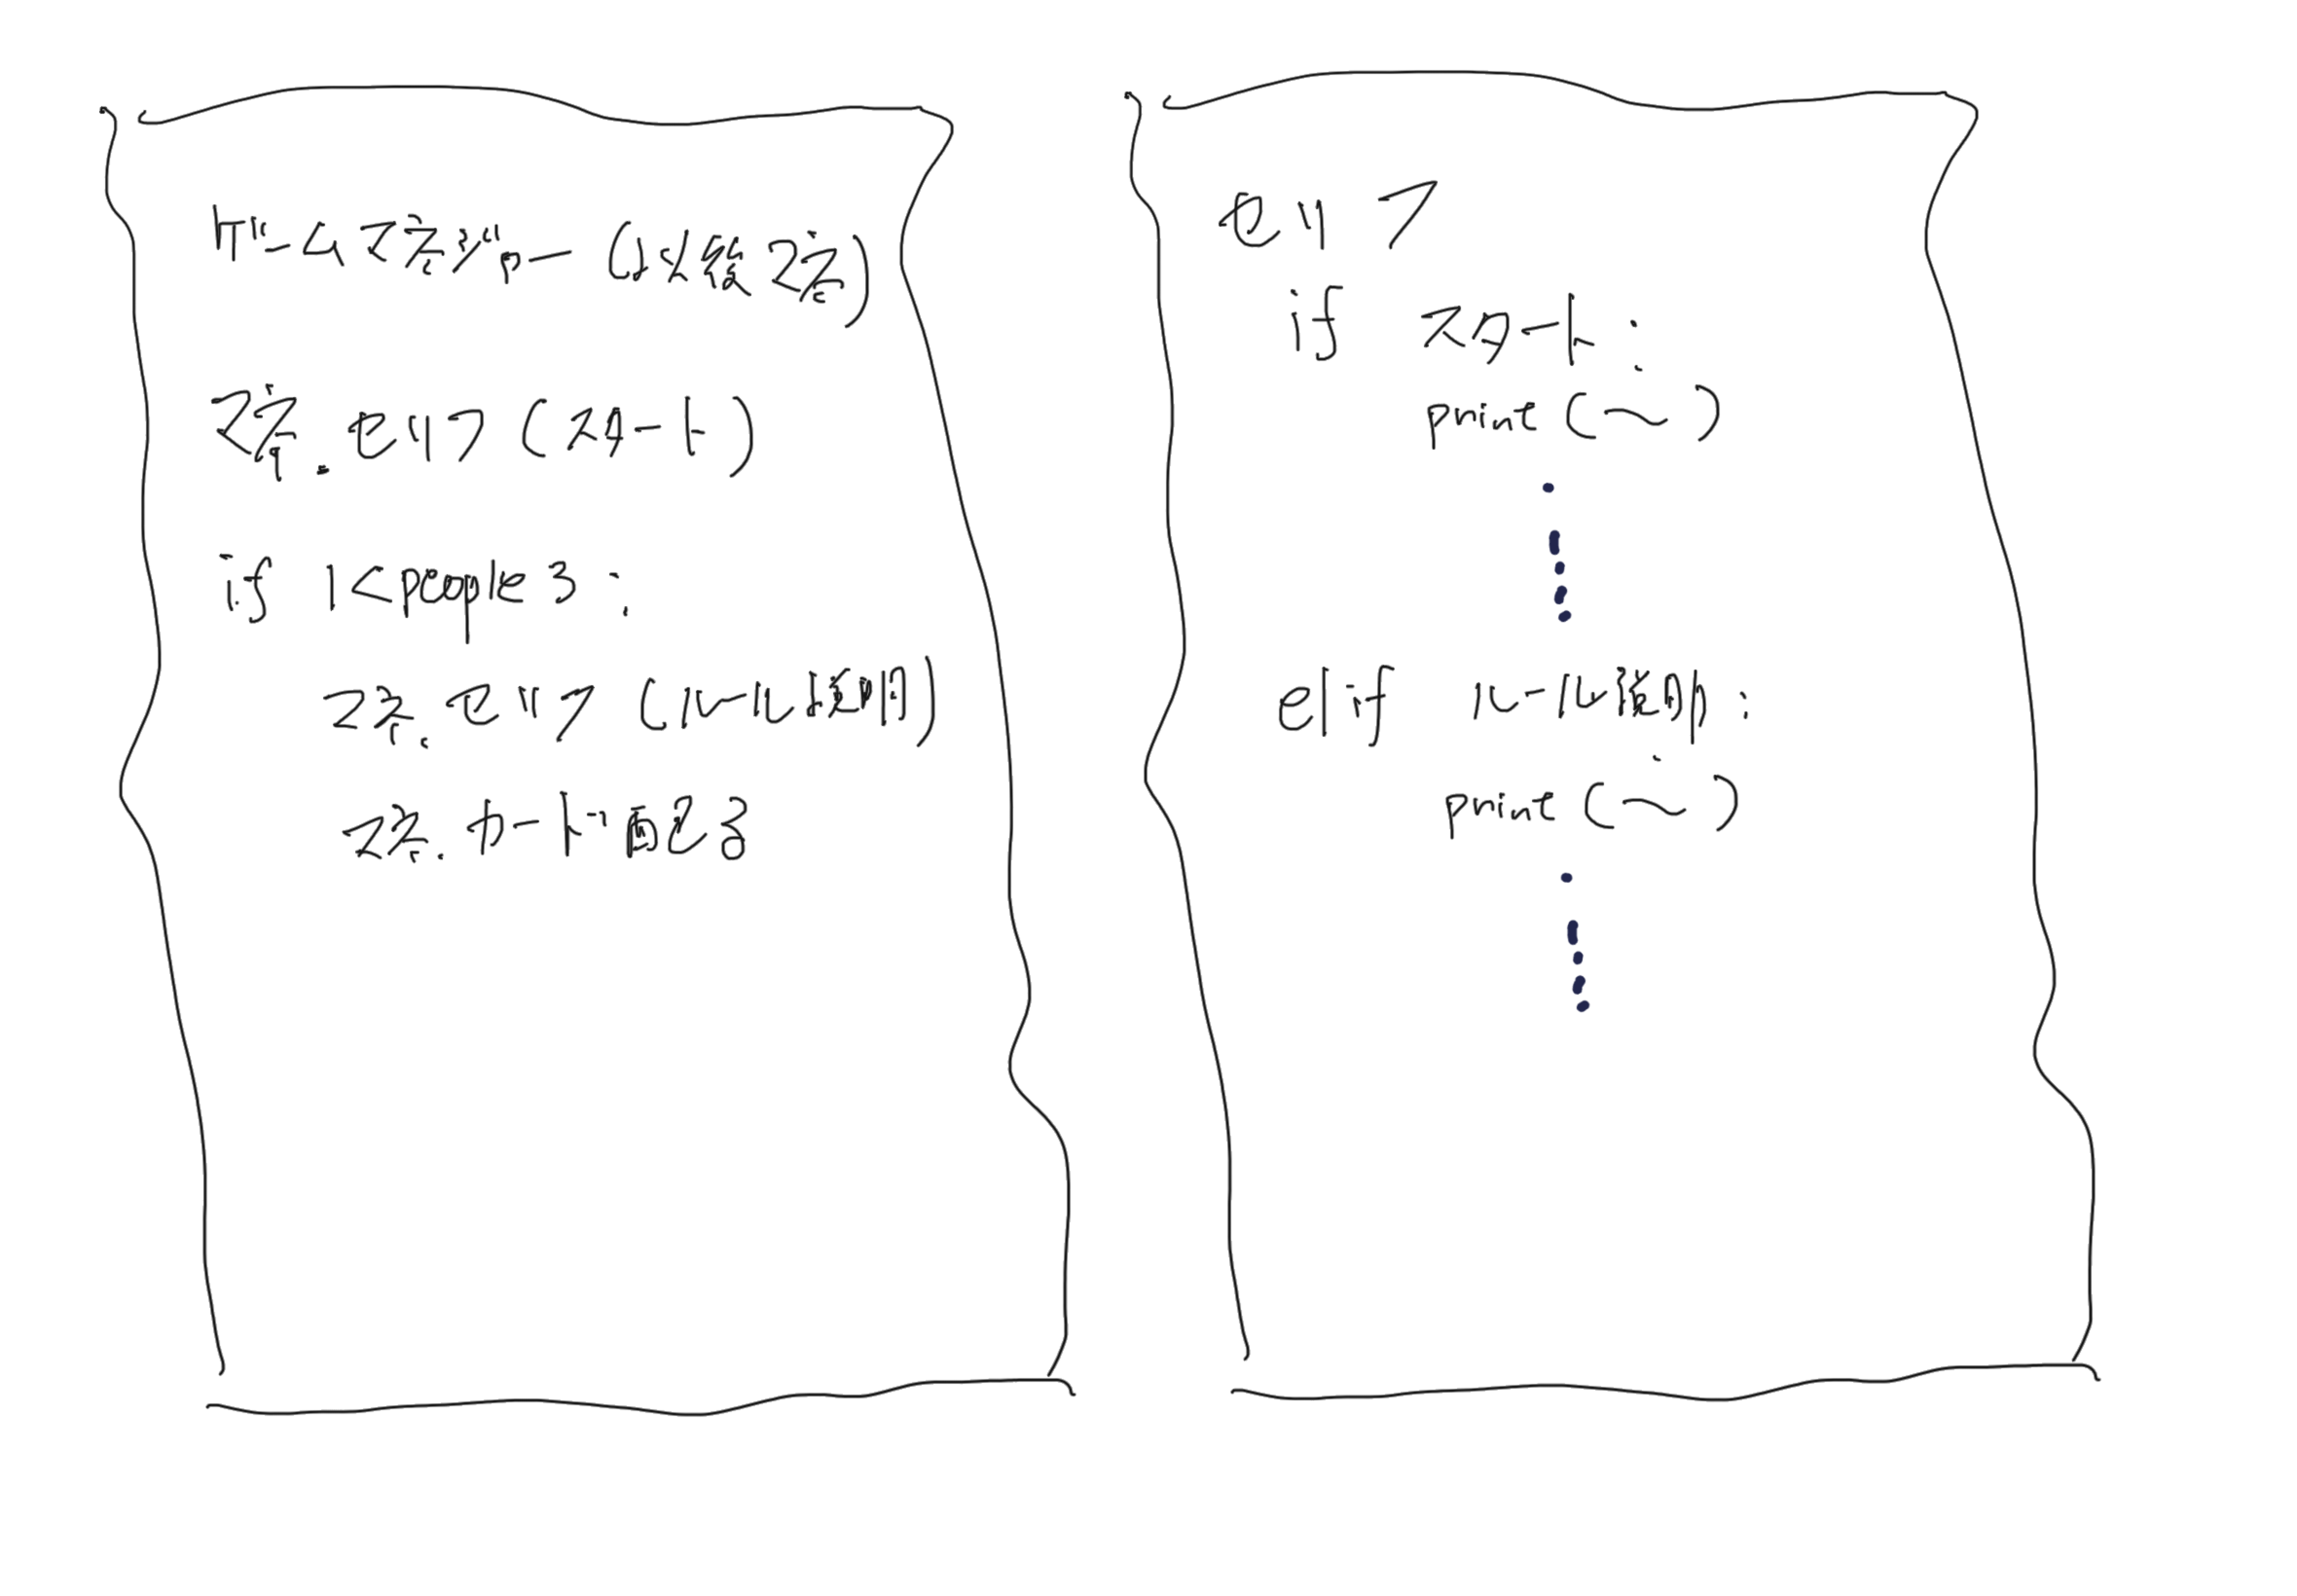 ゲームマネジャー (以後マネ)
マネ.セリフ(スタート)
if 1<people 3:
マネ.セリフ(ルール説明)
マネ.カード配る
セリフ
if スタート:
print(～)
elif ルール説明:
print(～)